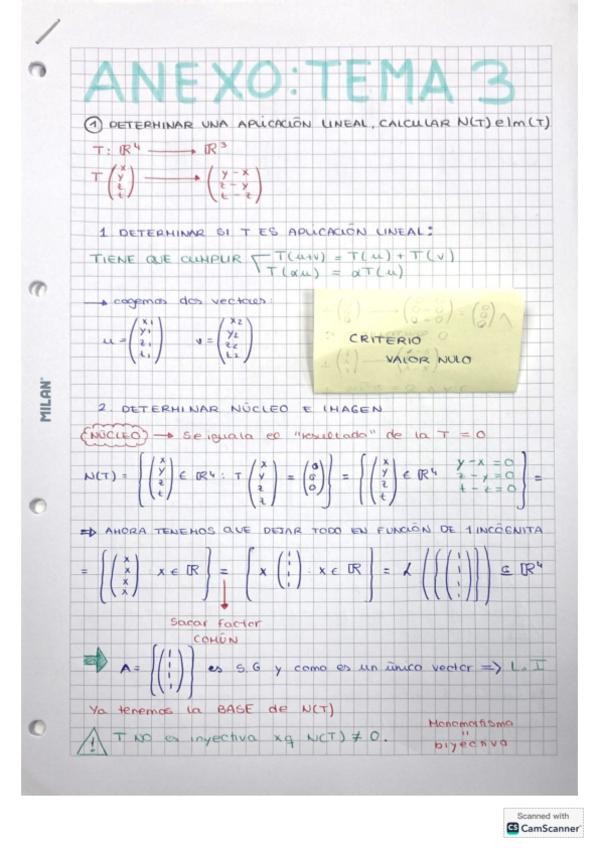 ANEXO: TEMA 3
① DETERMINAR UNA APLICACIÓN LINEAL, CALCULAR N(T) e Im(T)
T: ℝ⁴ ⟶ ℝ³
T (x y z t) ⟶ (y-x z-y t-z)
1 DETERMINAR SI T ES APLICACIÓN LINEAL:
TIENE QUE CUMPLIR { T(u+v) = T(u) + T(v)
T(αu) = αT(u)
→ cogemos dos vectores:
u = (x₁ y₁ z₁ t₁) v = (x₂ y₂ z₂ t₂)
CRITERIO
VALOR NULO
MILAN
2. DETERMINAR NÚCLEO E IMAGEN
NÚCLEO → Se iguala el "resultado" de la T = 0
N(T) = {(x y z t) ∈ ℝ⁴ : T (x y z t) = (0 0 0)} = {(x y z t) ∈ ℝ⁴ y-x=0 z-y=0 t-z=0} =
⇒ AHORA TENEMOS QUE DEJAR TODO EN FUNCIÓN DE 1 INCÓGNITA
= {(x x x x) x ∈ ℝ} = {x (1 1 1 1) : x ∈ ℝ} = L ({(1 1 1 1)}) ⊆ ℝ⁴
Sacar factor
COMÚN
⇒ A = {(1 1 1 1)} es S.G y como es un único vector => L.I
Ya tenemos la BASE de N(T)
! T NO es inyectiva xq N(T) ≠ 0.
Monomorfismo
"
biyectiva
Scanned with
CS CamScanner